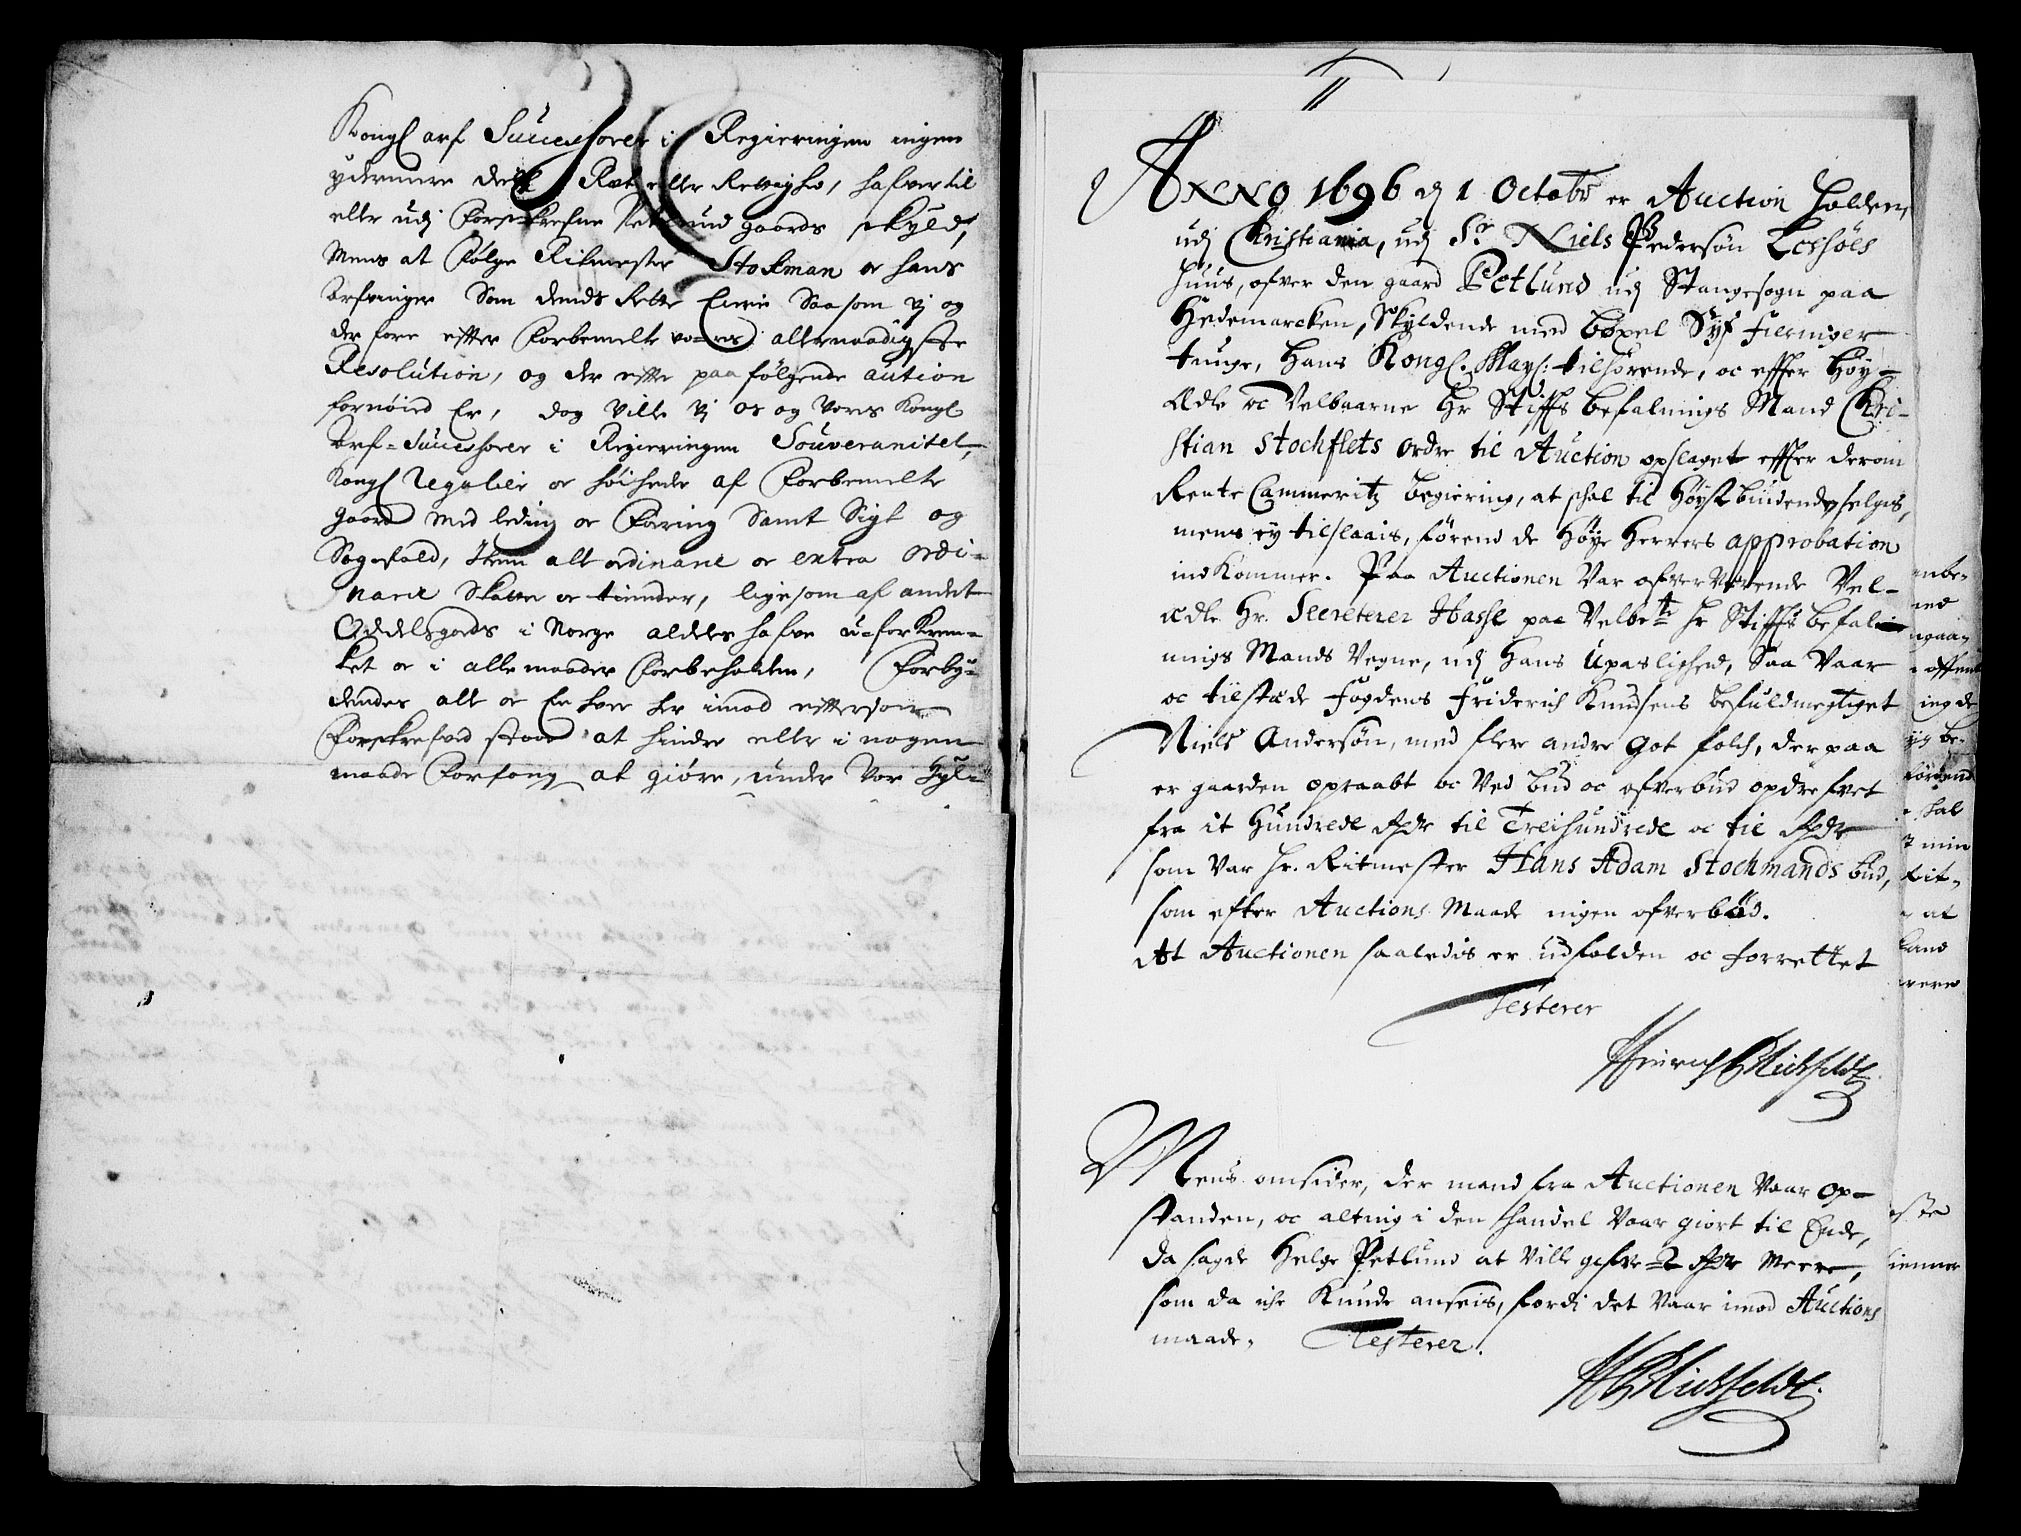 Kongl arf Successorer i Regieringen ingen
ydermere deel, Ræt eller Rettighed, hafver til
eller udj Forskrefne Petlund gaards skyld,
Mens at følge Ritmester Stokman oc hans
Arfvinger Som dends Rette Eiere Saasom Vj og
derfore efter Forbemelte vores allernaadigste
Resolution, og der efter paa følgende aution
fornøied Er, dog ville Vj os og Vores Kongl
Arf-Successorer i Regieringen Souveranitet,
Kongl Regalier oc höihede af Forbemelte
gaard med leding oc Foring Samt Sigt og
Sagefald, Item alt ordinarie oc extra ordi-
narie Skatter oc tiender, ligesom af andet
Oddelsgods i Norge aldeles hafve u-forkren-
ket oc i alle maader Forbeholden, Forby-
dendes alle oc Enhver her imod eftersom
Forskrefved staar at hindre eller i nogen
maade Forfang at giöre, under Vor Hyl-
Anno 1696 dj 1 Octobr er Auction Holden,
udj Christiania, udj Sr Niels Pedersøn Leshøls
Huus, ofver den gaard Petlund udj Stangesogn paa
Hedemarcken, Skyldende med bøxel Syf fieringer
tunge, Hans Kongl. Mays: tilhørende, oc effter Høy-
Ædle oc Velbaarne Hr Stiffts befalnings Mand Chri-
stian Stochflets ordre til Auction opslaget effter derom
Rente Cammeritz begiering, at skal til Høystbiudende selges,
mens ey tilslaais, førend de Høye Herrers approbation
indkommer. Paa Auctionen Var ofverværende Vel-
ædle Hr. Secreterer Hasse paa Velbete Hr Stiffts befal-
nings Mands Vegne, udj Hans Upaslighed, Saa Vaar
oc tilstæde Fogdens Friderich Knudsens befuldmegtiget
Niels Andersøn, med flere andre Got folch, der paa
er gaarden opraabt oc Ved bud oc ofverbud opdrefvet
fra it Hundrede Rdr til Treihundrede oc tie Rdr
som Var Hr. Ritmester Hans Adam Stochmands bud,
som efter Auctions Maade ingen ofverbød.
At Auctionen saaledis er udholden oc forrettet
Testerer
Hinrich Bliefeldt
Mens omsider, der mand fra Auctionen Vaar op-
standen, oc alting i den handel Vaar giort til Ende,
da sagde Helge Petlund at Ville gifve 2 Rdr Meere,
som da iche Kunde anseis, fordi det Vaar imod Auctions
maade. Testerer.
HBliefeldt.